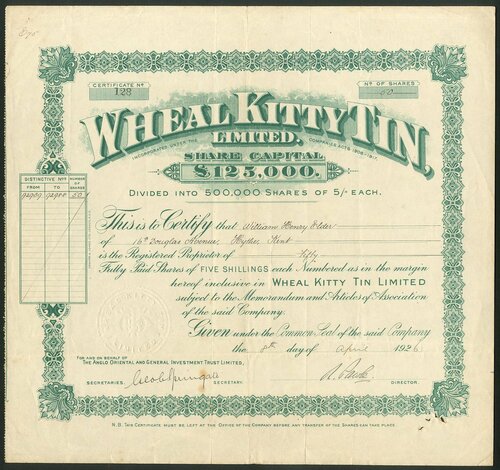 CERTIFICATE No
123
No OF SHARES
50
WHEAL KITTY TIN,
LIMITED.
INCORPORATED UNDER THE COMPANIES ACTS 1908-1917.
SHARE CAPITAL
£125,000.
DIVIDED INTO 500,000 SHARES OF 5/- EACH.
DISTINCTIVE Nos NUMBER OF SHARES
FROM TO
50
This is to Certify that William Henry Elder
of 16a Douglas Avenue, Hythe, Kent
is the Registered Proprietor of Fifty
Fully Paid Shares of FIVE SHILLINGS each Numbered as in the margin
hereof inclusive in WHEAL KITTY TIN LIMITED
subject to the Memorandum and Articles of Association
of the said Company.
Given under the Common Seal of the said Company
the 8th day of April 1926
FOR AND ON BEHALF OF
THE ANGLO ORIENTAL AND GENERAL INVESTMENT TRUST LIMITED,
SECRETARIES.
SECRETARY.
DIRECTOR.
N.B. THIS CERTIFICATE MUST BE LEFT AT THE OFFICE OF THE COMPANY BEFORE ANY TRANSFER OF THE SHARES CAN TAKE PLACE.